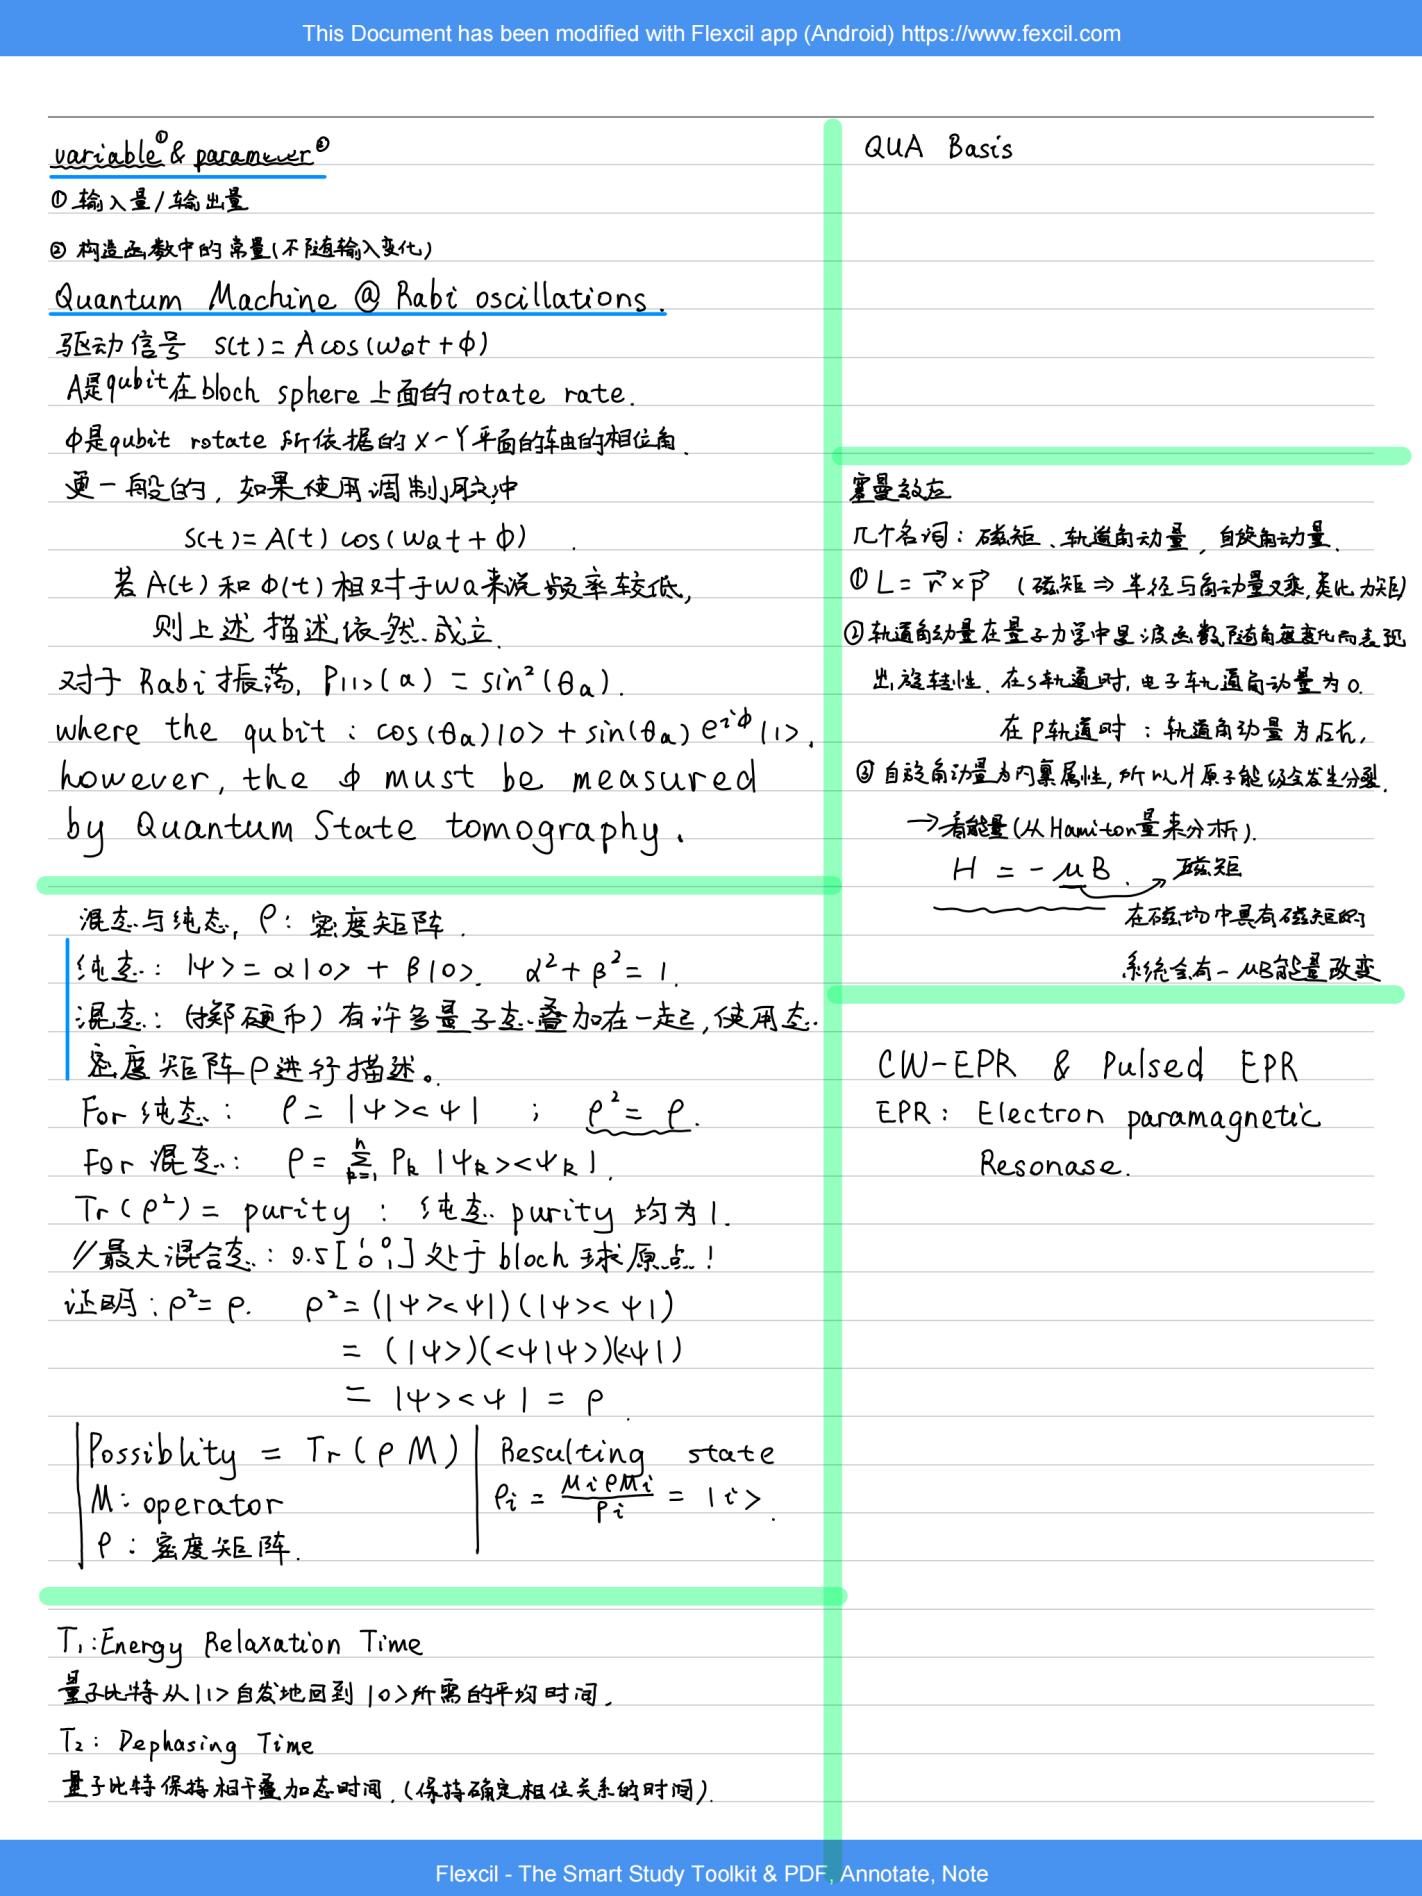 This Document has been modified with Flexcil app (Android) https://www.fexcil.com
variable① & parameter②
① 输入量/输出量
② 构造函数中的常量(不随输入变化)
Quantum Machine @ Rabi oscillations.
驱动信号 s(t)=Acos(ωat+ϕ)
A是qubit在bloch sphere上面的rotate rate.
ϕ是qubit rotate 所依据的X-Y平面的轴的相位角.
更一般的, 如果使用调制脉冲
s(t)=A(t) cos(ωat+ϕ) .
若A(t)和ϕ(t)相对于ωa来说频率较低,
则上述描述依然成立.
对于Rabi振荡, P|1>(a) = sin²(θa).
where the qubit : cos(θa)|0> + sin(θa) e^iϕ |1>.
however, the ϕ must be measured
by Quantum State tomography.
混态与纯态, ρ: 密度矩阵.
纯态: |ψ>=α|0> + β|0>. α²+β²=1.
混态: (掷硬币) 有许多量子态叠加在一起, 使用态
密度矩阵ρ进行描述。
For 纯态: ρ= |ψ><ψ| ; ρ²=ρ.
For 混态: ρ= Σ_{k=1}^{n} Pk |ψk><ψk|.
Tr(ρ²)= purity : 纯态 purity 均为1.
//最大混合态: 0.5[1 0 0 1] 处于bloch球原点!
证明: ρ²=ρ. ρ²=(|ψ><ψ|)(|ψ><ψ|)
= (|ψ>)(<ψ|ψ>)(<ψ|)
= |ψ><ψ| = ρ.
Possiblity = Tr(ρM)
M: operator
ρ: 密度矩阵.
Resulting state
ρi = MiρMi/Pi = |i>.
T₁: Energy Relaxation Time
量子比特从|1>自发地回到|0>所需的平均时间.
T₂: Dephasing Time
量子比特保持相干叠加态时间.(保持确定相位关系的时间).
QUA Basis
塞曼效应
几个名词: 磁矩、轨道角动量, 自旋角动量.
① L= r⃗×p⃗ (磁矩⇒半径与角动量叉乘,类比力矩)
② 轨道角动量在量子力学中是波函数随角度变化而表现
出旋转性. 在s轨道时, 电子轨道角动量为0.
在P轨道时 : 轨道角动量为√2ħ,
③ 自旋角动量为内禀属性, 所以片原子能级会发生分裂.
→看能量(从Hamiton量来分析).
H = -μB. 磁矩
在磁场中具有磁矩的
系统会有-μB能量改变
CW-EPR & Pulsed EPR
EPR: Electron paramagnetic
Resonase.
Flexcil - The Smart Study Toolkit & PDF, Annotate, Note